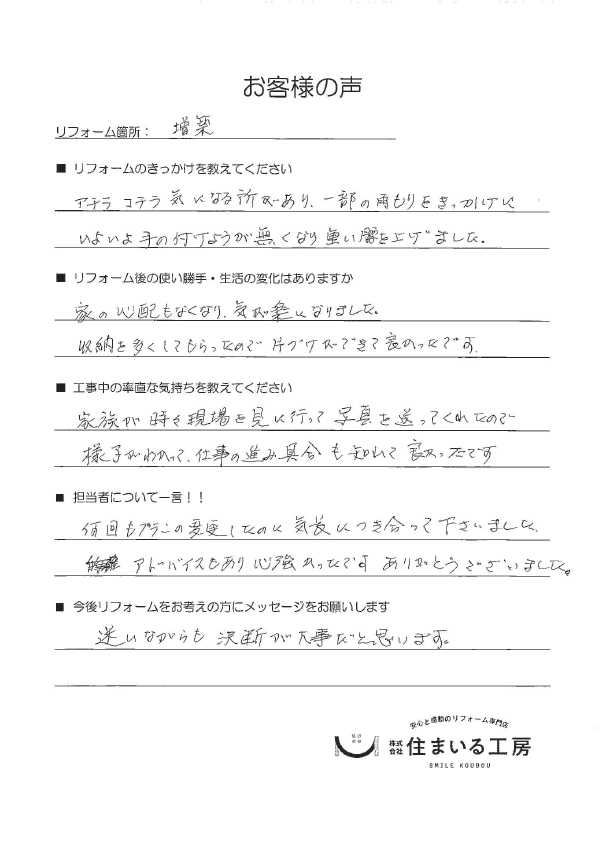 お客様の声
リフォーム箇所： 増築
■ リフォームのきっかけを教えてください
アチラ コチラ 気になる所があり、一部の雨もりをきっかけに
いよいよ手の付けようが無くなり重い腰を上げました。
■ リフォーム後の使い勝手・生活の変化はありますか
家の心配もなくなり、気が楽になりました。
収納を多くしてもらったので 片づけができて良かったです。
■ 工事中の率直な気持ちを教えてください
家族が時々現場を見に行って写真を送ってくれたので
様子がわかって、仕事の進み具合も知れて良かったです
■ 担当者について一言！！
何回もプランの変更したのに気長につき合って下さいました、
アドバイスもあり心強かったです ありがとうございました。
■ 今後リフォームをお考えの方にメッセージをお願いします
迷いながらも 決断が大事だと思います。
安心と感動のリフォーム専門店
株式会社 住まいる工房
SMILE KOUBOU